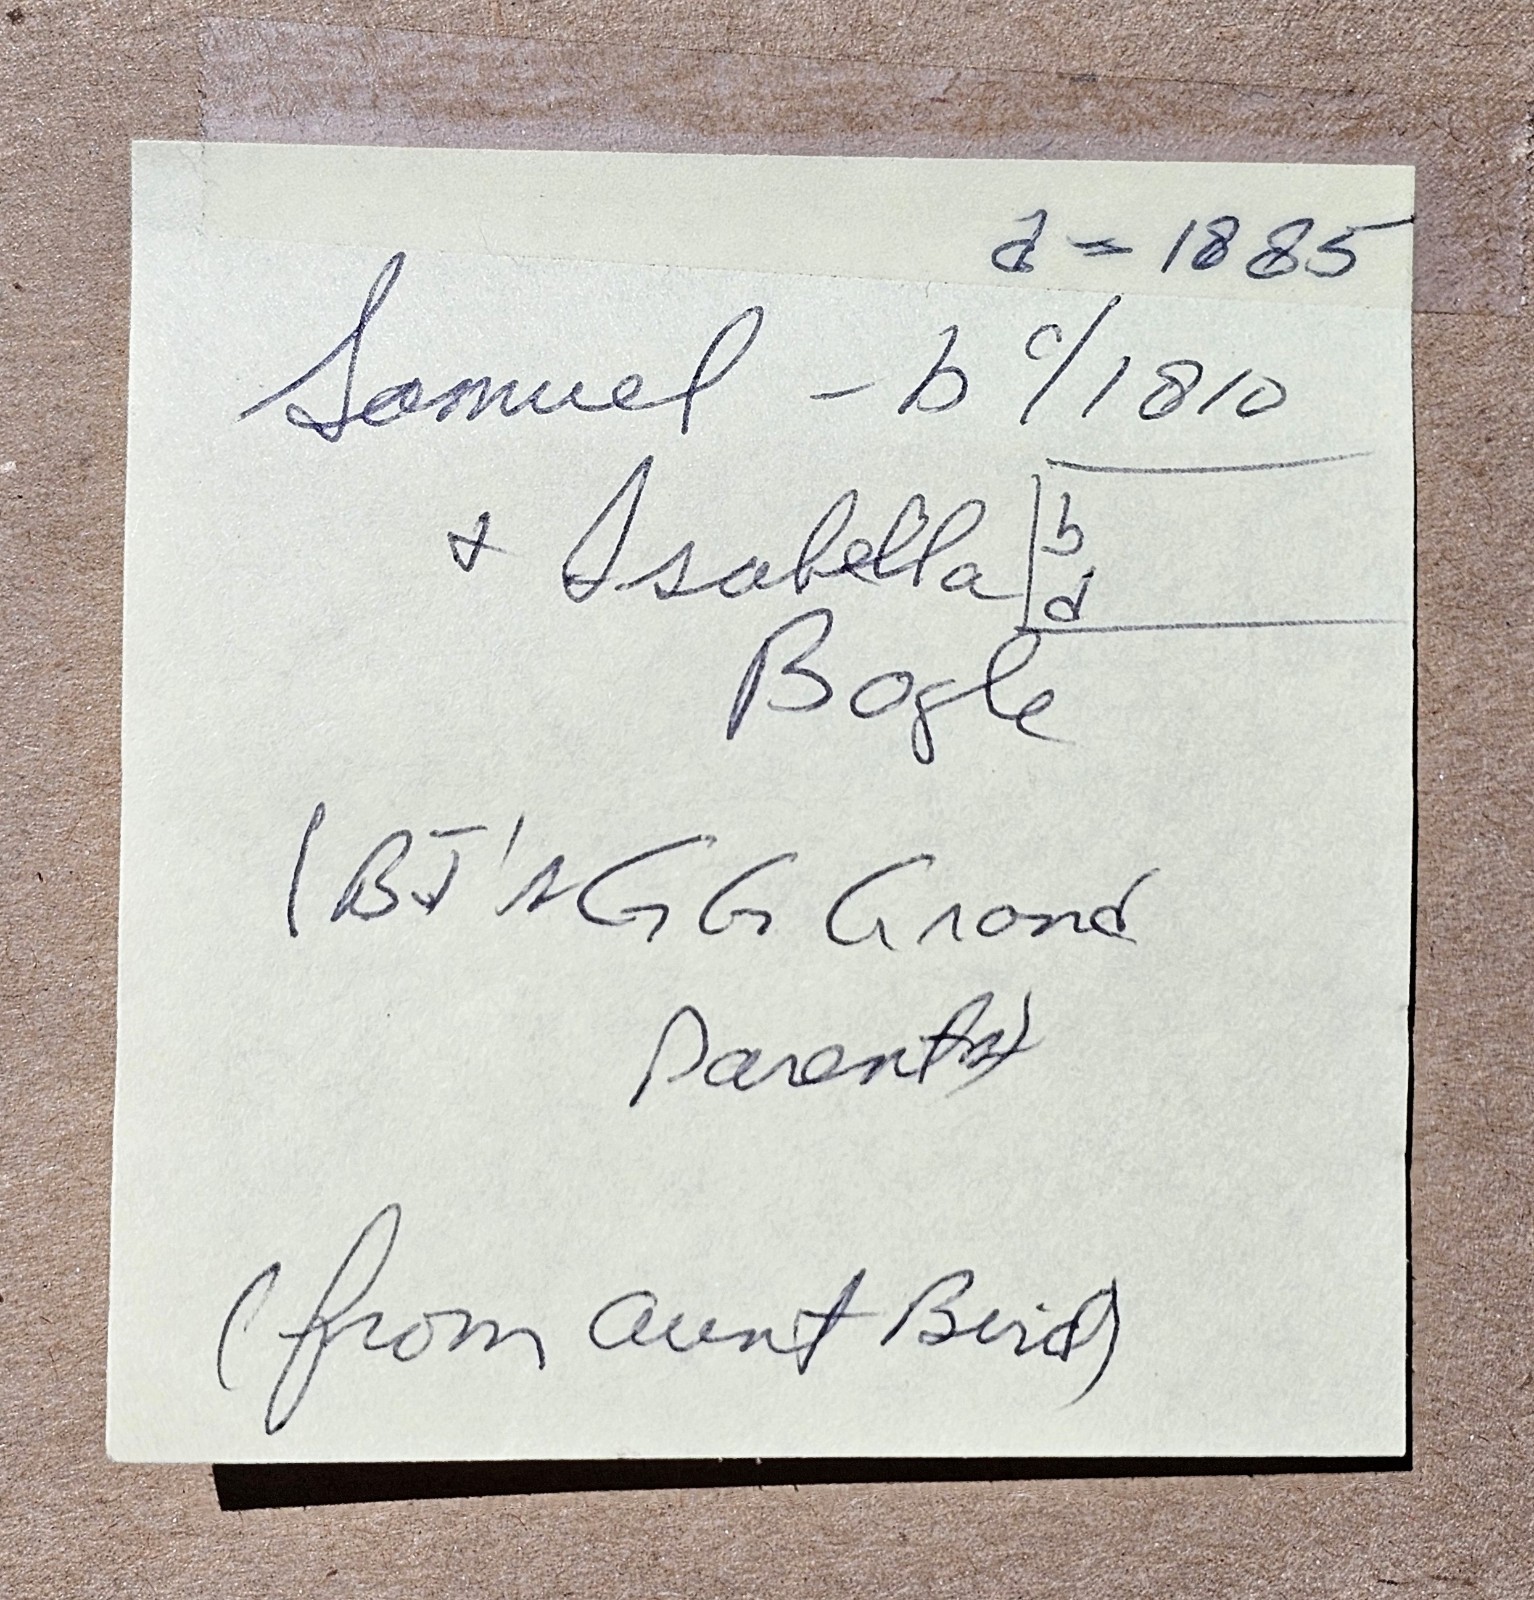 d = 1885
Samuel - b c/1810
+ Isabella b
d
Bogle
(BJ's GG Grand
Parents)
(from Aunt Bird)